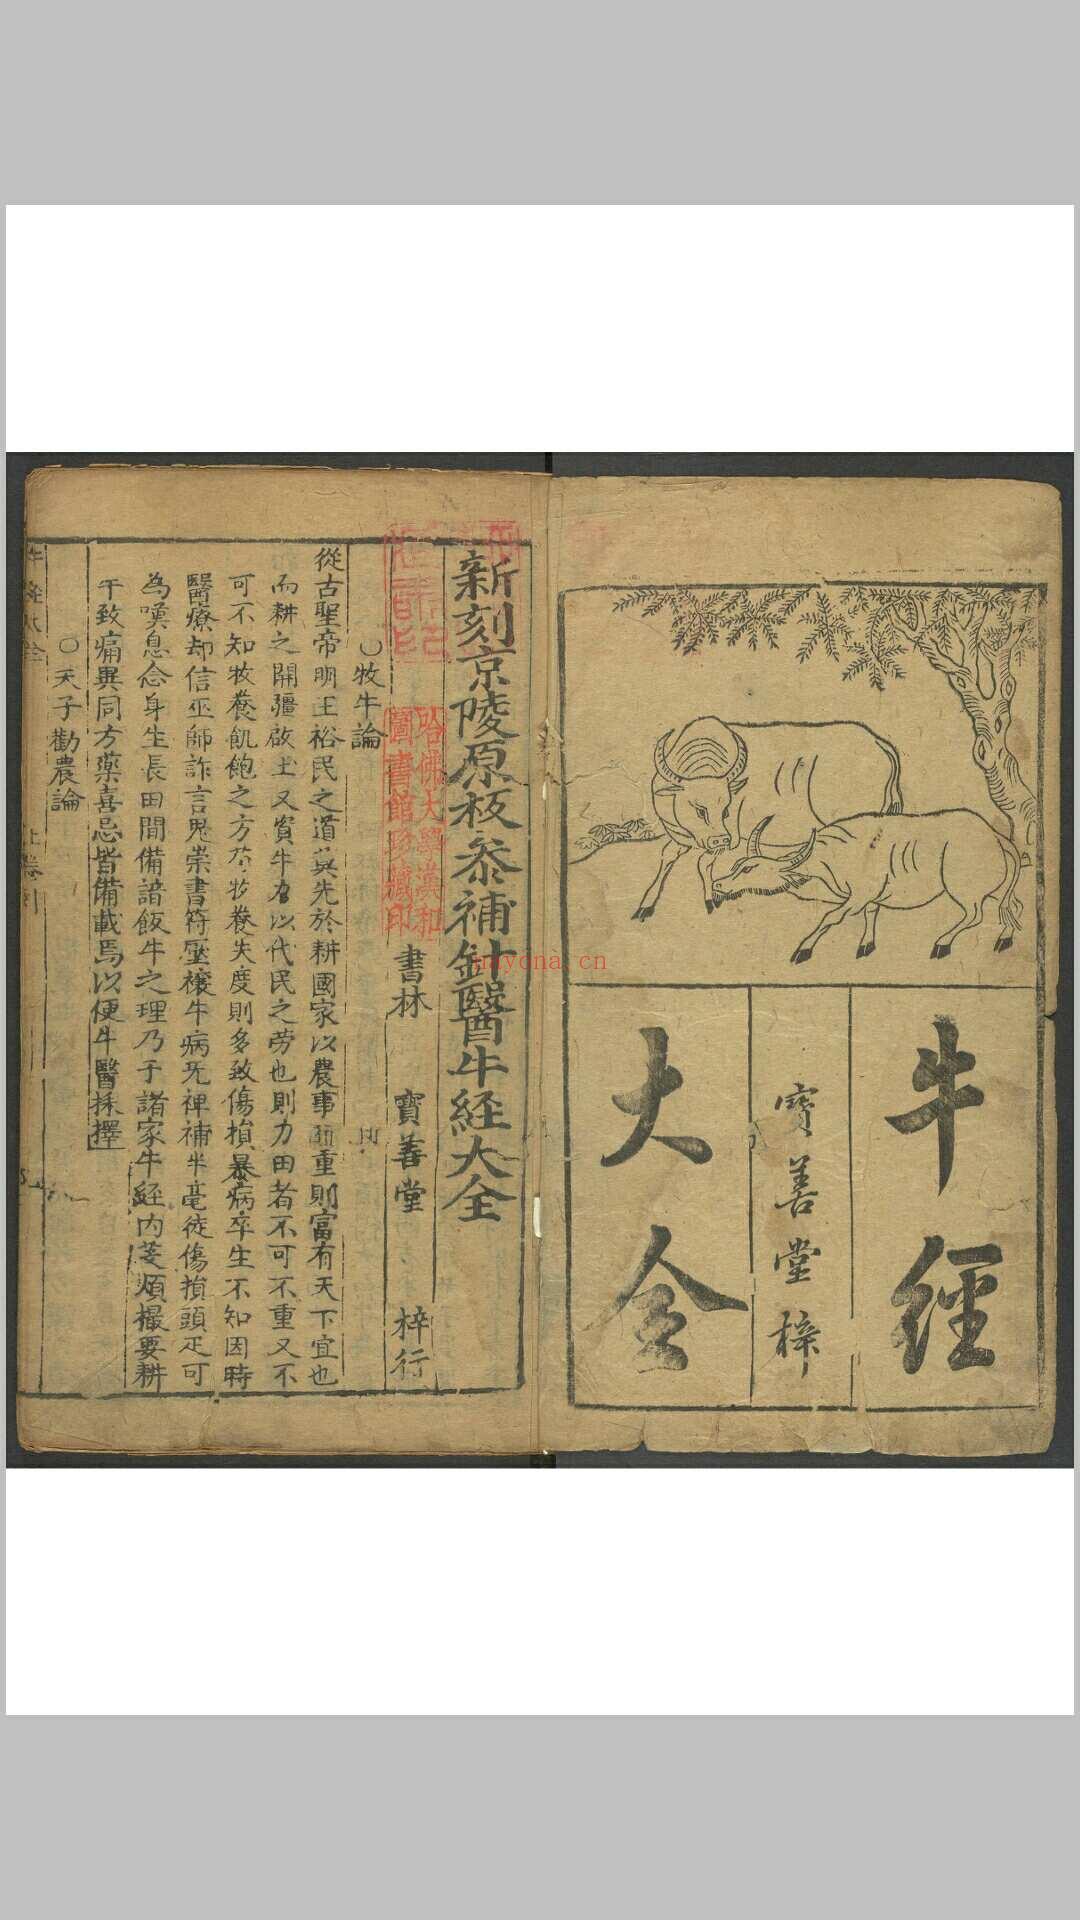 牛經
寶善堂梓
大全
新刻京陵原板參補針醫牛経大全
書林 寶善堂 梓行
哈佛大學漢和
圖書館珍藏印
○牧牛論
從古聖帝明王裕民之道莫先於耕國家以農事為重則富有天下宜也
而耕之開疆啟土又資牛力以代民之劳也則力田者不可不重又不
可不知牧養飢飽之方苟牧養失度則多致傷損暴病卒生不知因時
醫療却信巫師詐言鬼祟書符壓禳牛病旡裨補半毫徒傷損頭疋可
為嘆息念身生長田間備諳飯牛之理乃于諸家牛経内芟煩撮要耕
干致痛異同方藥喜忌皆備載焉以便牛醫採擇
○天子勸農論
上卷
nayona.cn